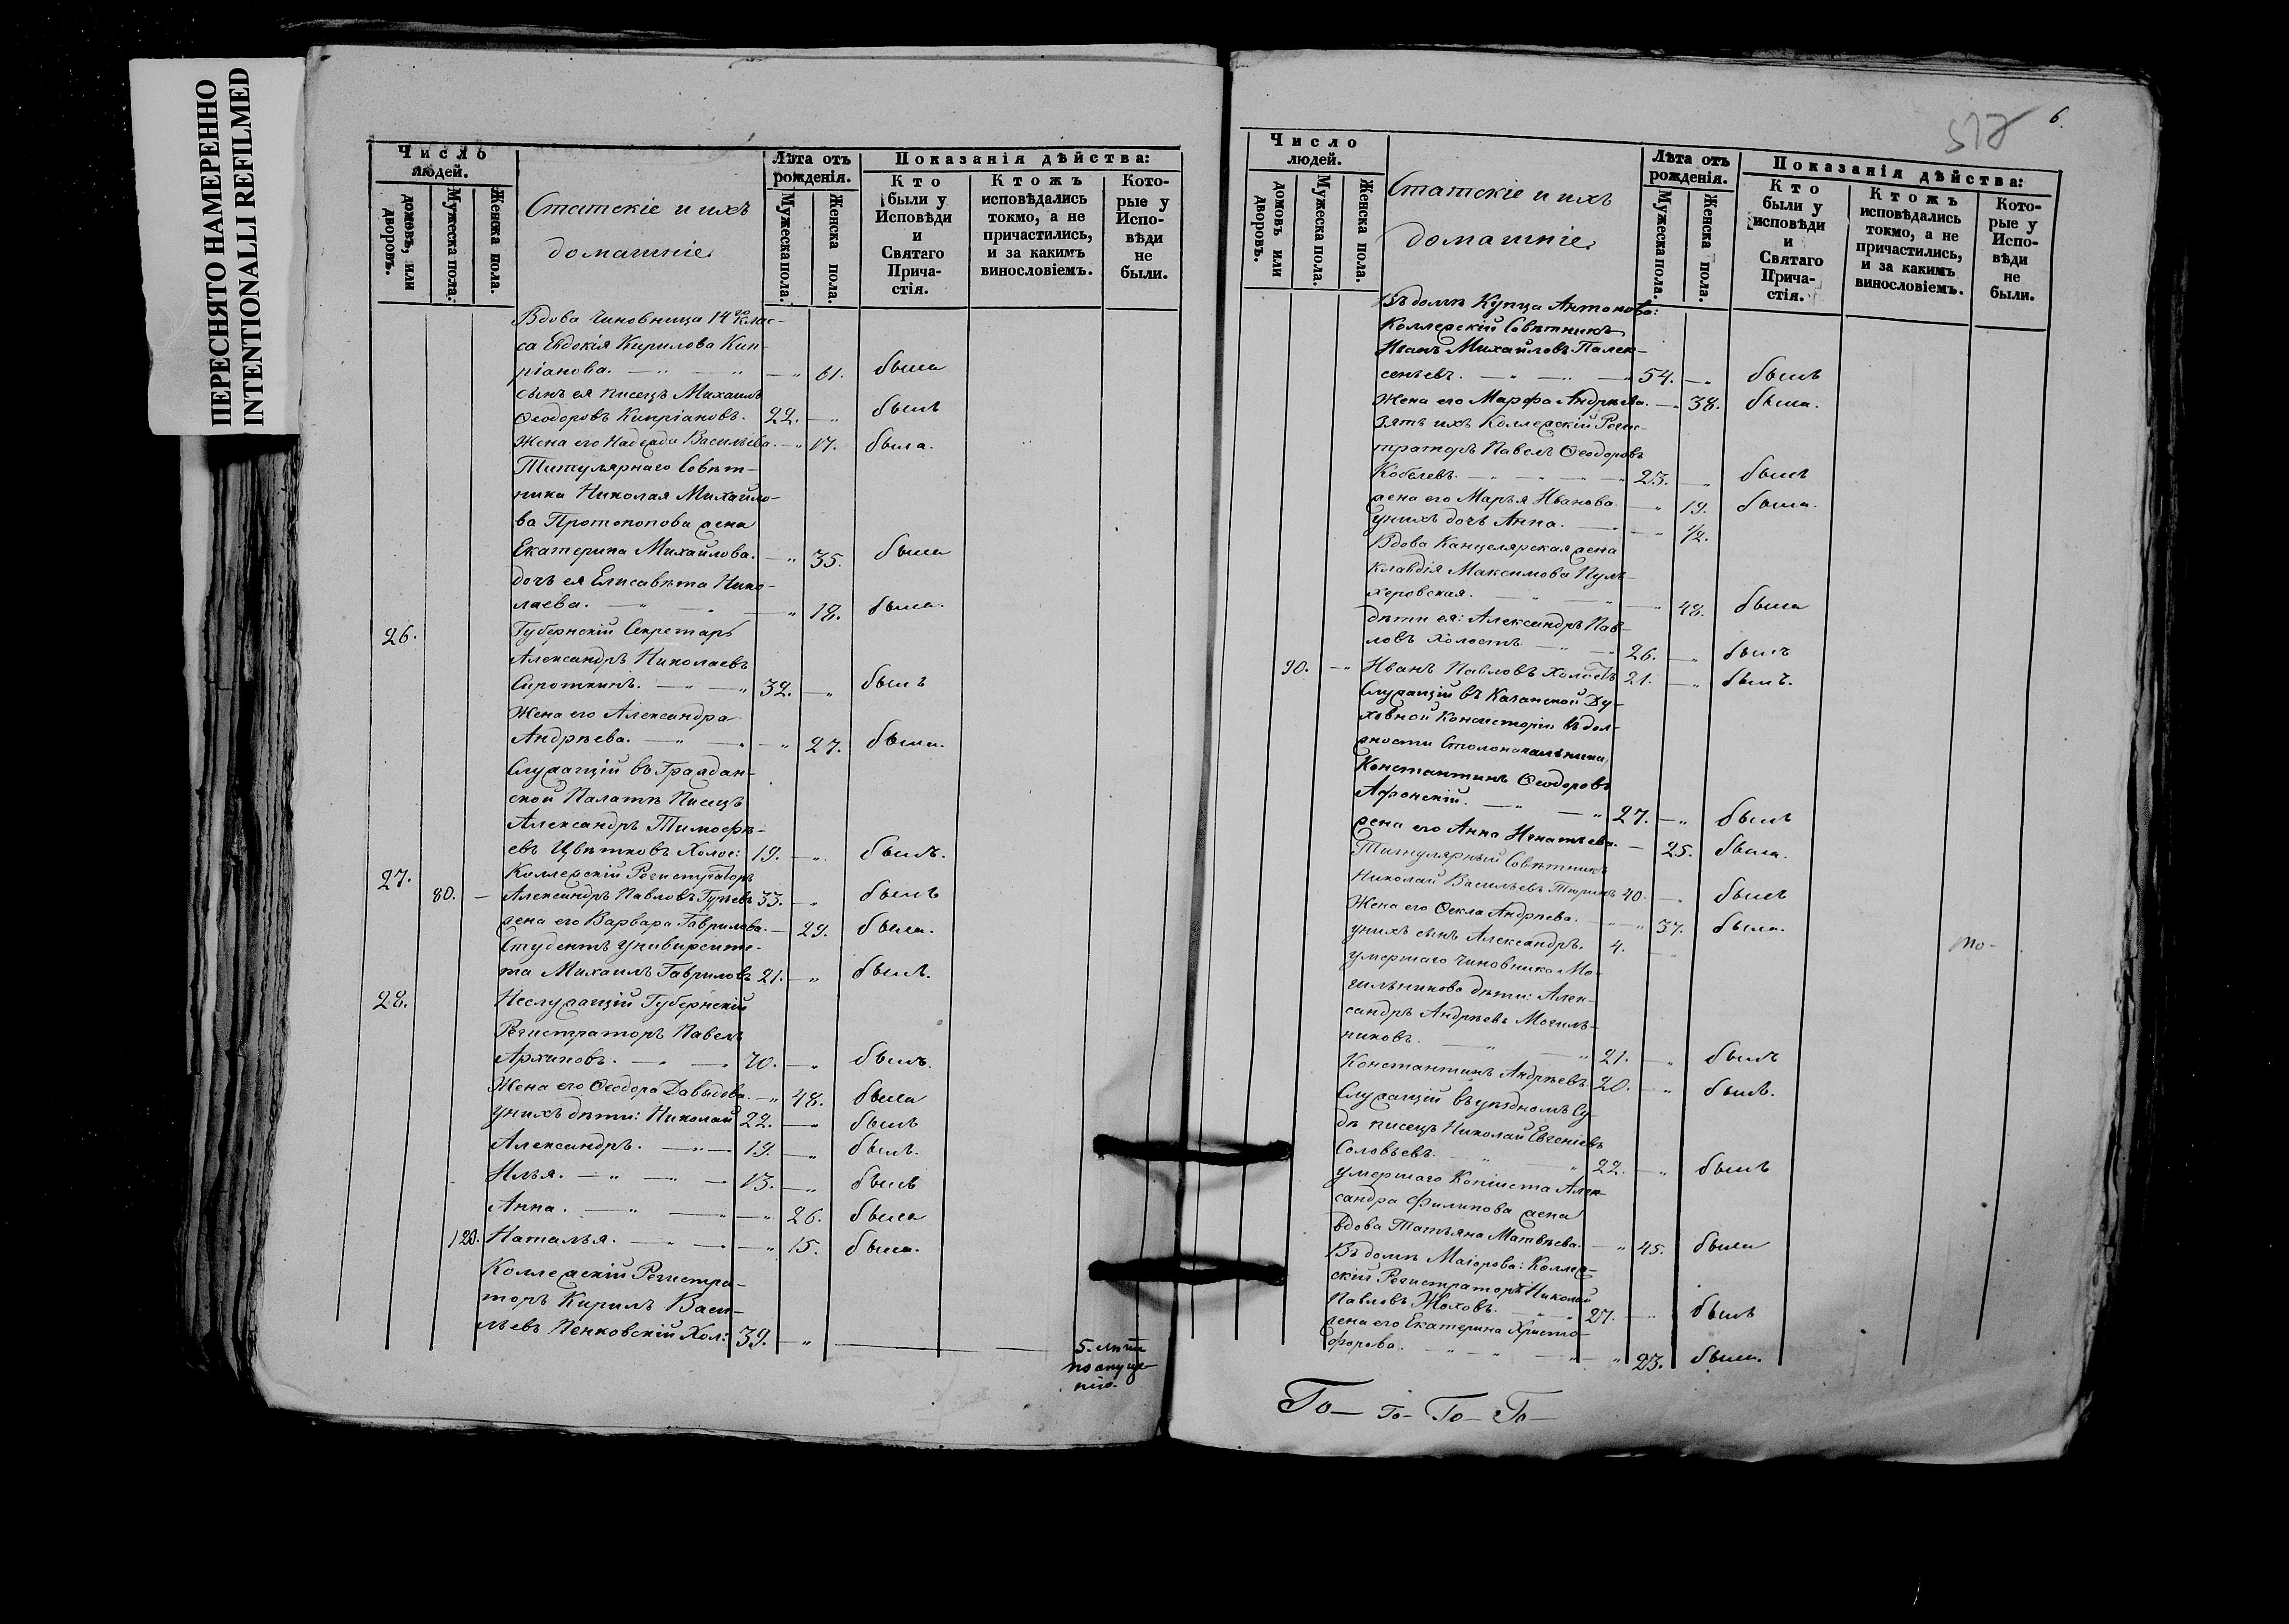 ПЕРЕСНЯТО НАМЕРЕННО
INTENTIONALLI REFILMED
Число
людей.
домовъ, или
дворовъ.
Мужеска пола.
Женска пола.
Статскіе и ихъ
домашніе.
Лѣта отъ
рожденія.
Мужеска пола.
Женска пола.
Показанія дѣйства:
Кто
были у
Исповѣди
и
Святаго
Прича-
стія.
Ктожъ
исповѣдались
токмо, а не
причастились,
и за какимъ
винословіемъ.
Кото-
рые у
Испо-
вѣди
не
были.
Вдова Чиновница 14го Клас-
са Евдокія Кирилова Кип-
ріанова. 61. была
Сынъ ея писецъ Михаилъ
Ѳеодоровъ Кипріановъ. 22. былъ
Жена его Надежда Васильева. 17. была.
Титулярнаго Совѣт-
ника Николая Михайло-
ва Протопопова жена
Екатерина Михайлова. 35. была
дочь ея Елисавѣта Нико-
лаева. 18. была.
26. Губернскій Секретарь
Александръ Николаевъ
Сироткинъ. 32. былъ
Жена его Александра
Андрѣева. 27. была.
Служащій въ Граждан-
ской Палатѣ Писецъ
Александръ Тимофѣ-
евъ Цвѣтковъ Холос: 19. былъ.
27. Коллежскій Регистраторъ
80. Александръ Павловъ Гурьевъ 33. былъ
жена его Варвара Гаврилова. 29. была.
Студентъ Университе-
та Михаилъ Гавриловъ 21. былъ.
28. Неслужащій Губернскій
Регистраторъ Павелъ
Архиповъ. 70. былъ.
Жена его Ѳеодора Давыдова. 48. была
у нихъ дѣти: Николай 22. былъ
Александръ. 19. былъ.
Илья. 13. былъ
Анна. 26. была
120. Наталья. 15. была.
Коллежскій Регистра-
торъ Кирилъ Васи-
льевъ Пенковскій Хол: 39.
5. лѣтъ
по опуще
нію.
6.
Число
людей.
домовъ или
дворовъ.
Мужеска пола.
Женска пола.
Статскіе и ихъ
домашніе.
Лѣта отъ
рожденія.
Мужеска пола.
Женска пола.
Показанія дѣйства:
Кто
были у
исповѣди
и
Святаго
Прича-
стія.
Ктожъ
исповѣдались
токмо, а не
причастились,
и за какимъ
винословіемъ.
Кото-
рые у
Испо-
вѣди
не
были.
Въ домѣ Купца Антонова:
Коллежскій Совѣтникъ
Иванъ Михайловъ Палек-
сеньевъ. 54. былъ
Жена его Марфа Андрѣева. 38. была.
Зять ихъ Коллежскій Реги-
траторъ Павелъ Ѳеодоровъ
Кобелевъ. 25. былъ
жена его Марья Иванова. 19. была.
у нихъ дочь Анна. 1/2.
Вдова Канцелярская жена
Клавдія Максимова Пуль-
херовская. 48. была
дѣти ея: Александръ Пав-
ловъ холостъ 26. былъ
90. Иванъ Павловъ Холостъ 21. былъ.
Служащій въ Казанской Ду-
ховной Консисторіи въ дол-
жности Столоначальника
Константинъ Ѳеодоровъ
Афонскій. 27. былъ
жена его Анна Игнатьева. 25. была.
Титулярный Совѣтникъ
Николай Васильевъ Тюринъ 40. былъ
Жена его Ѳекла Андрѣева. 37. была.
у нихъ сынъ Александръ. 4.
умершаго Чиновника Мо-
гильникова дѣти: Алек-
сандръ Андрѣевъ Могиль-
никовъ. 21. былъ
Константинъ Андрѣевъ. 20. былъ.
Служащій въ уѣздномъ Су-
дѣ писецъ Николай Евгеніевъ
Соловьевъ. 22. былъ
умершаго Копіиста Алек-
сандра Филипова жена
вдова Татьяна Матвѣева. 45. была
Въ домѣ Маіорова: Коллеж-
скій Регистраторъ Николай
Павловъ Жоховъ. 27. былъ
жена его Екатерина Христо-
форова. 23. была.
то-
То- То- То- То-